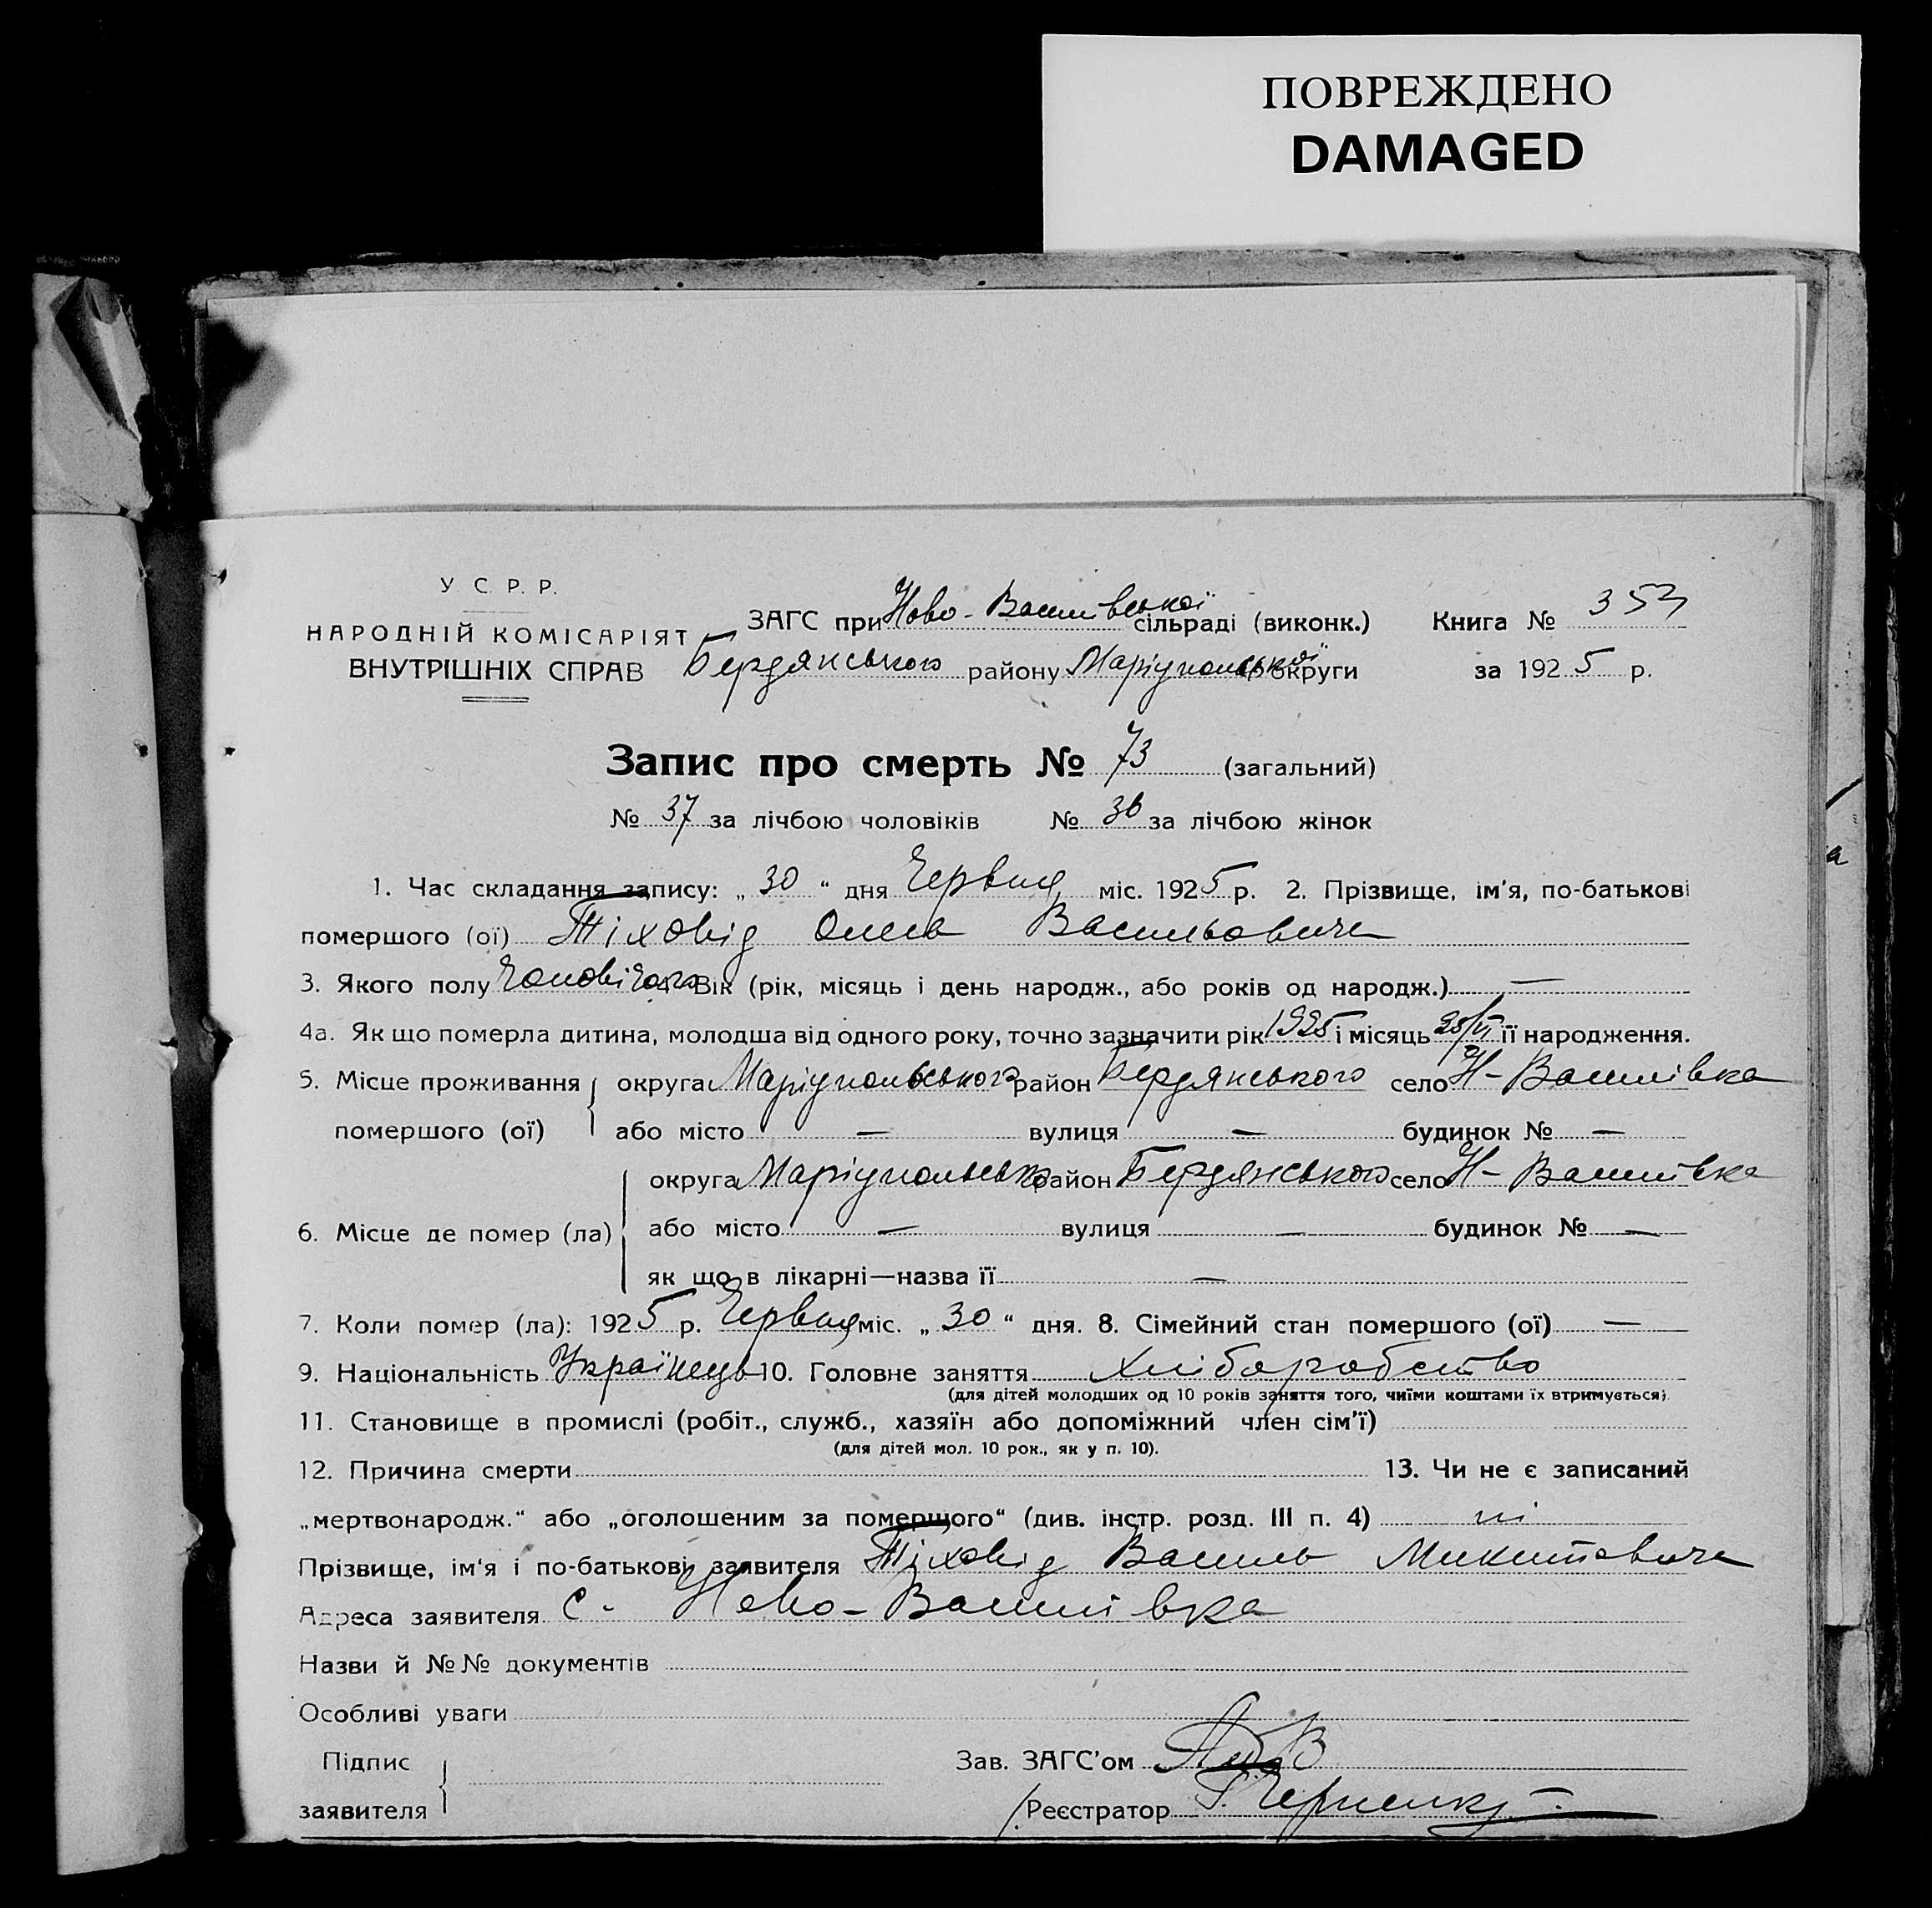 ПОВРЕЖДЕНО
DAMAGED
У С. Р. Р.
НАРОДНІЙ КОМІСАРІЯТ
ВНУТРІШНІХ СПРАВ
ЗАГС при Ново-Василівської сільраді (виконк.)
Бердянського району Маріупольської округи
Книга № 353
за 1925 р.
Запис про смерть № 73 (загальний)
№ 37 за лічбою чоловіків № 36 за лічбою жінок
1. Час складання запису: „ 30 “ дня Червня міс. 1925 р. 2. Прізвище, ім'я, по-батькові
помершого (ої) Тіховід Олесь Васильович
3. Якого полу Чоловічого 4. Вік (рік, місяць і день народж., або років од народж.) —
4а. Як що померла дитина, молодша від одного року, точно зазначити рік 1925 і місяць 25/VI її народження.
5. Місце проживання округа Маріупольського район Бердянського село Н-Василівка
помершого (ої) або місто — вулиця — будинок № —
округа Маріупольсько район Бердянського село Н-Василівка
6. Місце де помер (ла) або місто — вулиця — будинок № —
як що в лікарні—назва її —
7. Коли помер (ла): 1925 р. Червня міс. „ 30 “ дня. 8. Сімейний стан помершого (ої) —
9. Національність Українець 10. Головне заняття Хліборобство
(для дітей молодших од 10 років заняття того, чиїми коштами їх втримується)
11. Становище в промислі (робіт., служб., хазяїн або допоміжний член сім'ї)
(для дітей мол. 10 рок., як у п. 10).
12. Причина смерти 13. Чи не є записаний
„мертвонародж.“ або „оголошеним за померщого“ (див. інстр. розд. III п. 4) ні
Прізвище, ім'я і по-батькові заявителя Тіховід Василь Микитович
Адреса заявителя с. Ново-Василівка
Назви й №№ документів
Особливі уваги
Підпис
заявителя
Зав. ЗАГС'ом
Реєстратор